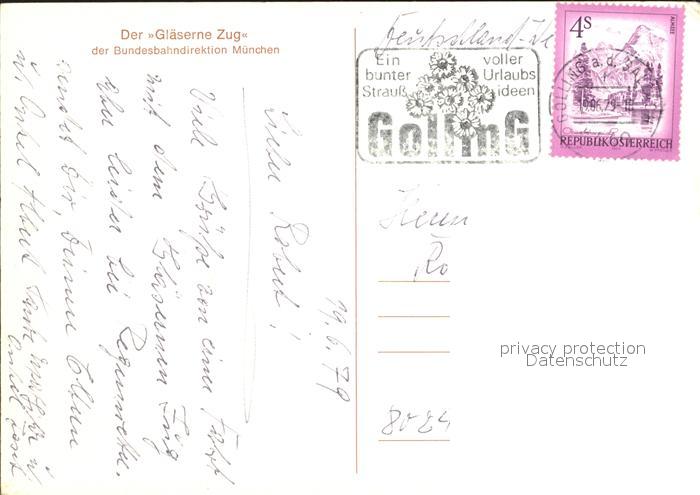 Der »Gläserne Zug«
der Bundesbahndirektion München
19.6.79
Lieber Robert!
Viele Grüße von einer Fahrt
mit dem Gläsernen Zug
leider bei Regenwetter.
sendet Dir, Deinen Eltern
Onkel
Tante
Deutschland
Ein
bunter
Strauß
voller
Urlaubs
ideen
GollinG
4S
ALMSEE
GOLLING a. d. SA
REPUBLIK ÖSTERREICH
Herrn
Ro
8024
privacy protection
Datenschutz